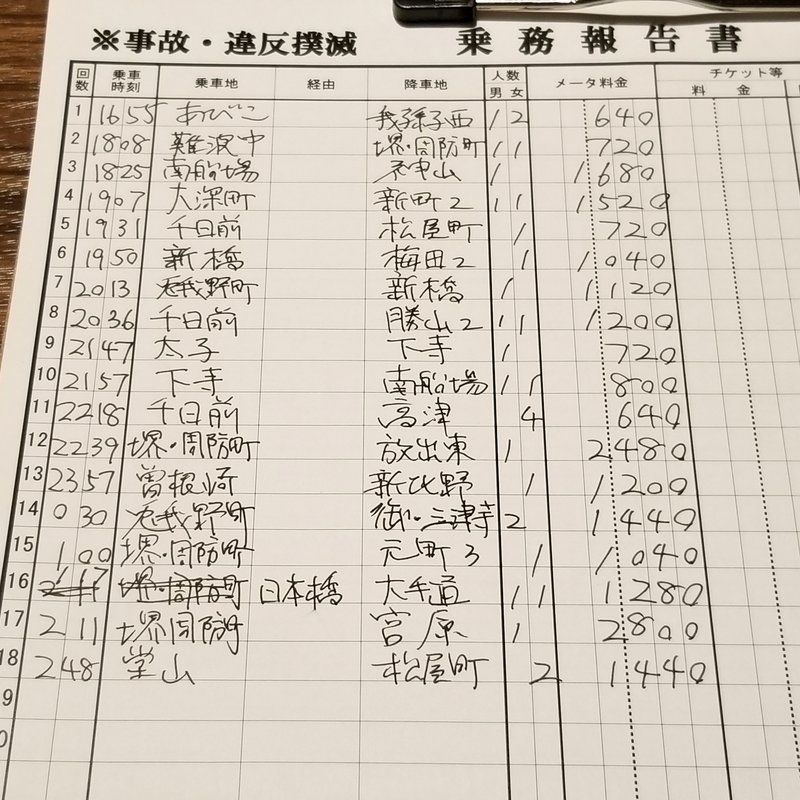 ※事故・違反撲滅 乗務報告書
回数 乗車時刻 乗車地 経由 降車地 人数 男 女 メータ料金 チケット等 料 金
1 1655 あびこ 我孫子西 1 2 640
2 1808 難波中 堺・周防町 1 1 720
3 1825 南船場 天神山 1 1680
4 1907 大深町 新町2 1 1 1520
5 1931 千日前 松屋町 1 720
6 1950 新橋 梅田2 1 1040
7 2013 兎我野町 新橋 1 1120
8 2036 千日前 勝山2 1 1 1200
9 2147 太子 下寺 1 720
10 2157 下寺 南船場 1 1 800
11 2218 千日前 高津 4 640
12 2239 堺・周防町 放出東 1 2480
13 2357 曽根崎 新北野 1 1200
14 0 30 兎我野町 御・三津寺 2 1440
15 1 00 堺・周防町 元町3 1 1040
16 1 17 日本橋 大手通 1 1 1280
17 2 11 堺周防町 宮原 1 2800
18 2 48 堂山 松屋町 2 1440
9
0